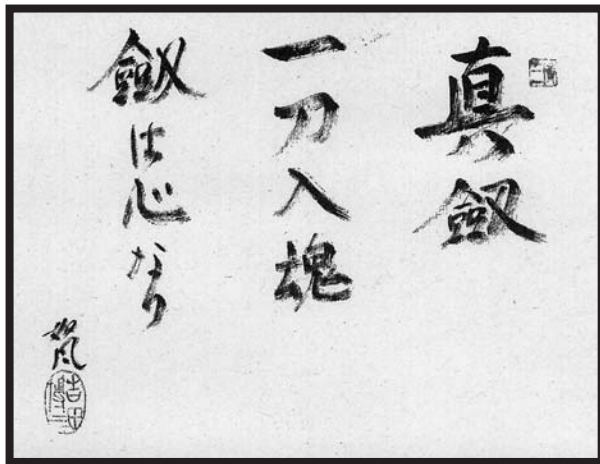 真劔
一刀入魂
劔は心なり